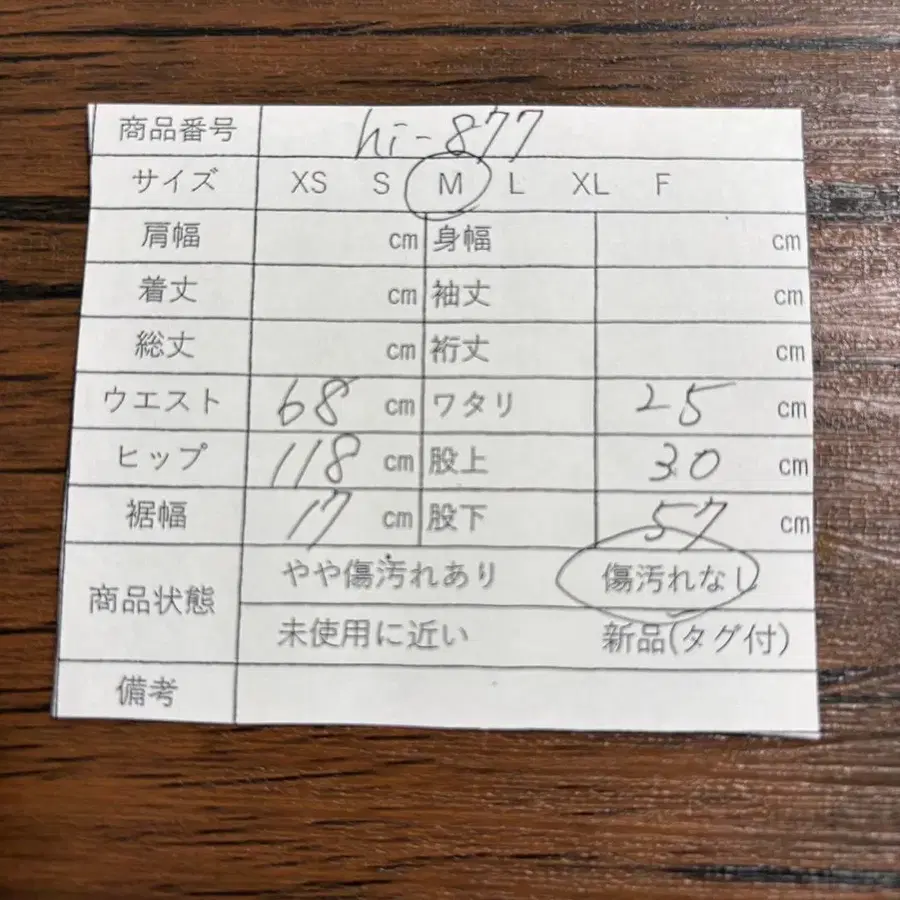 商品番号 hi-877
サイズ XS S M L XL F
肩幅 cm 身幅 cm
着丈 cm 袖丈 cm
総丈 cm 裄丈 cm
ウエスト 68 cm ワタリ 25 cm
ヒップ 118 cm 股上 30 cm
裾幅 17 cm 股下 57 cm
商品状態 やや傷汚れあり 傷汚れなし
未使用に近い 新品(タグ付)
備考